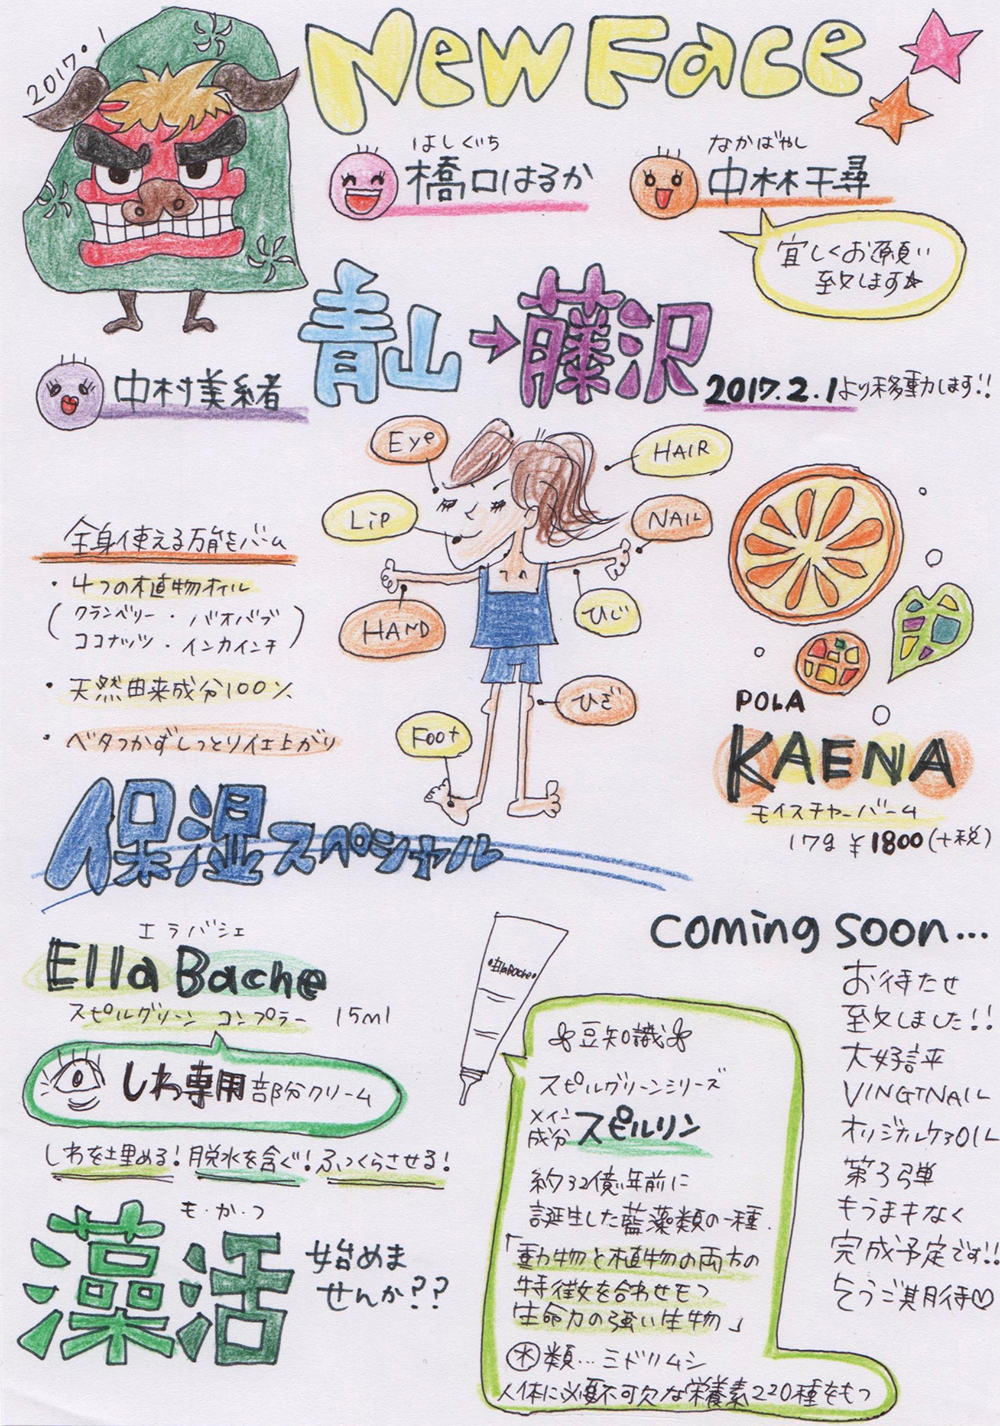 2017.1
New Face
はしぐち
橋口はるか
なかばやし
中林千尋
宜しくお願い
致します☆
青山→藤沢
中村美緒
2017.2.1より移動します!!
Eye
HAIR
Lip
NAIL
HAND
ひじ
ひざ
Foot
全身使える万能バーム
・4つの植物オイル
(クランベリー・バオバブ
ココナッツ・インカインチ)
・天然由来成分100%
・ベタつかずしっとり仕上がり
POLA
KAENA
モイスチャーバーム
17g ¥1800(+税)
保湿スペシャル
エラバシェ
Ella Bache
スピルグリーン コンプラー 15ml
しわ専用部分クリーム
しわを埋める!脱水を含ぐ!ふっくらさせる!
も・か・つ
藻活
始めま
せんか??
・EllaBache・
豆知識
スピルグリーンシリーズ
メイン
成分 スピルリン
約32億年前に
誕生した藍藻類の一種.
「動物と植物の両方の
特徴を合わせもつ
生命力の強い生物」
類…ミドリムシ
人体に必要不可欠な栄養素220種をもつ
coming soon...
お待たせ
致しました!!
大好評
VINGTNAIL
オリジナルケアOIL
第3弾
もうまもなく
完成予定です!!
そうご期待♡